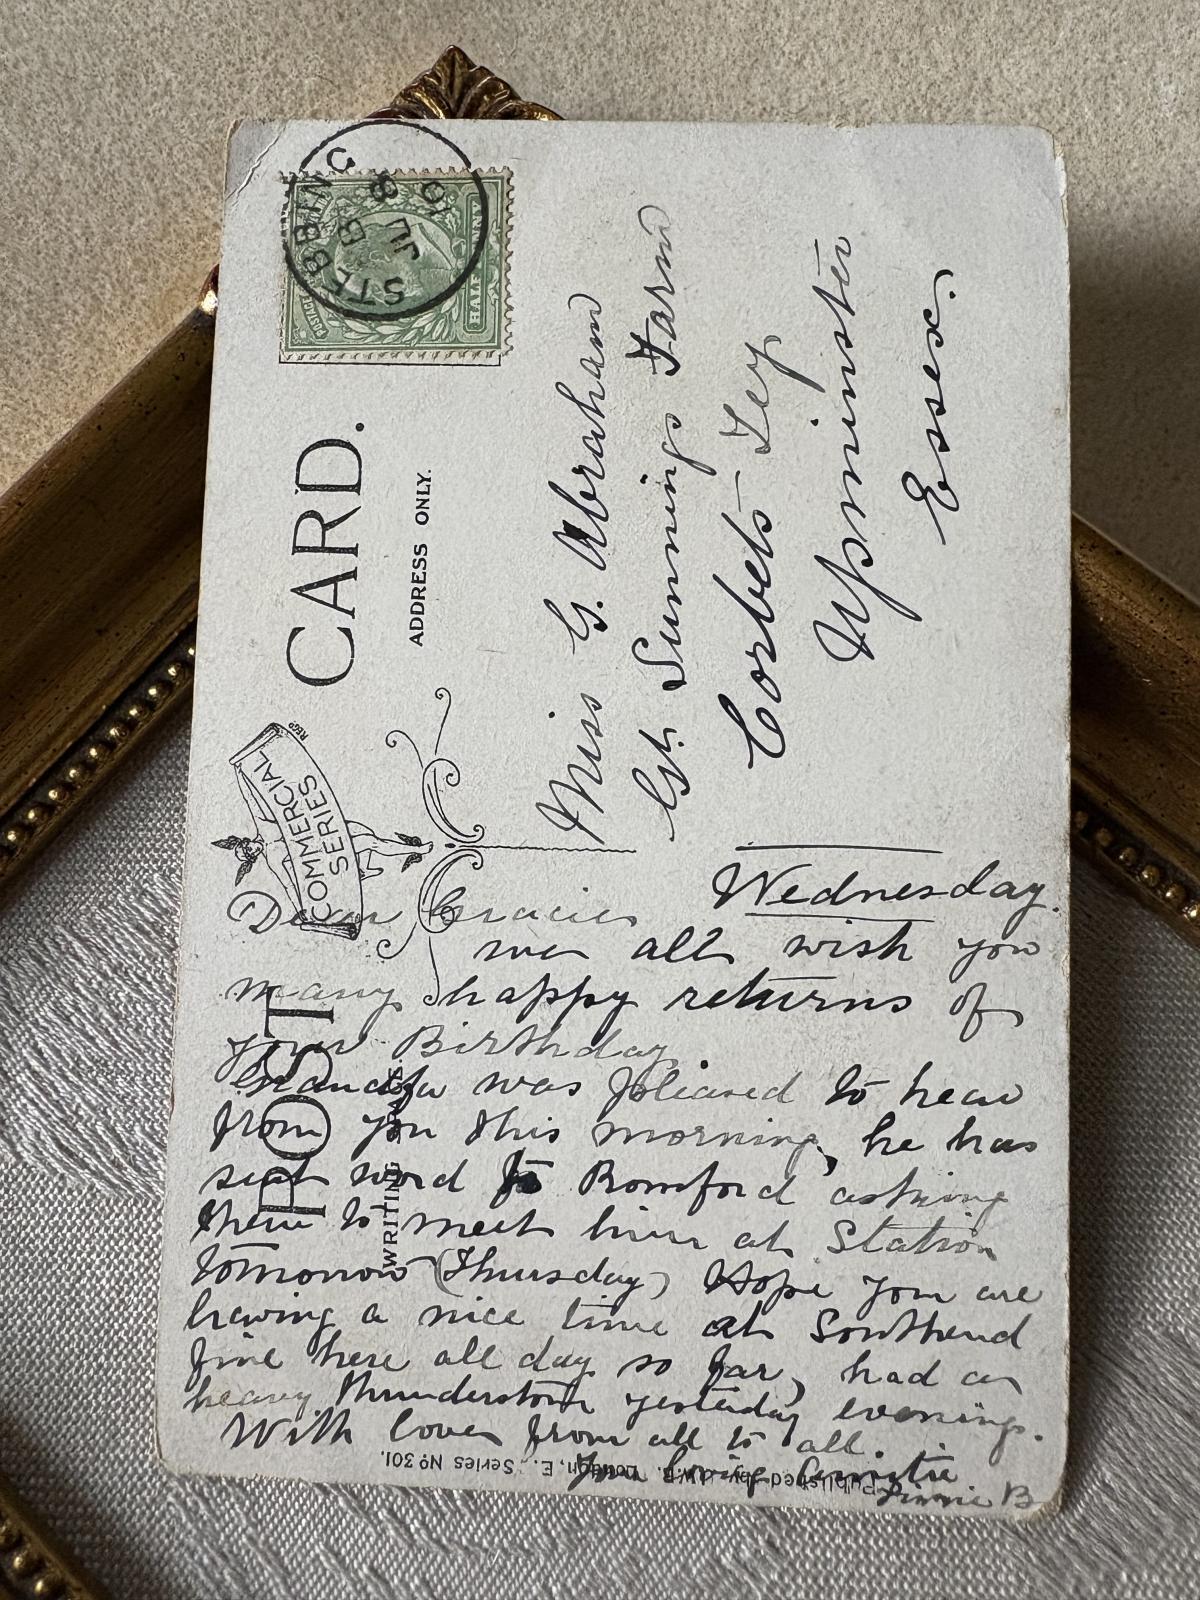 POST CARD.
COMMERCIAL
SERIES
REGD
WRITING
ADDRESS ONLY.
STEBBING
B
JL 8
10
POSTAGE
HALF PENNY
Miss G. Abraham
Gt. Sunnings Farm
Corbets Tey
Upminster
Essex.
Wednesday.
Dear Gracie
we all wish you
many happy returns of
your Birthday.
Grandfa was pleased to hear
from you this morning, he has
sent word to Romford asking
them to meet him at Station
tomorrow (Thursday) Hope you are
having a nice time at Southend
fine here all day so far, had a
heavy thunderstorm yesterday evening.
With love from all to all.
Your loving Auntie
B
Published by J.W.B. London, E., Series No 301.